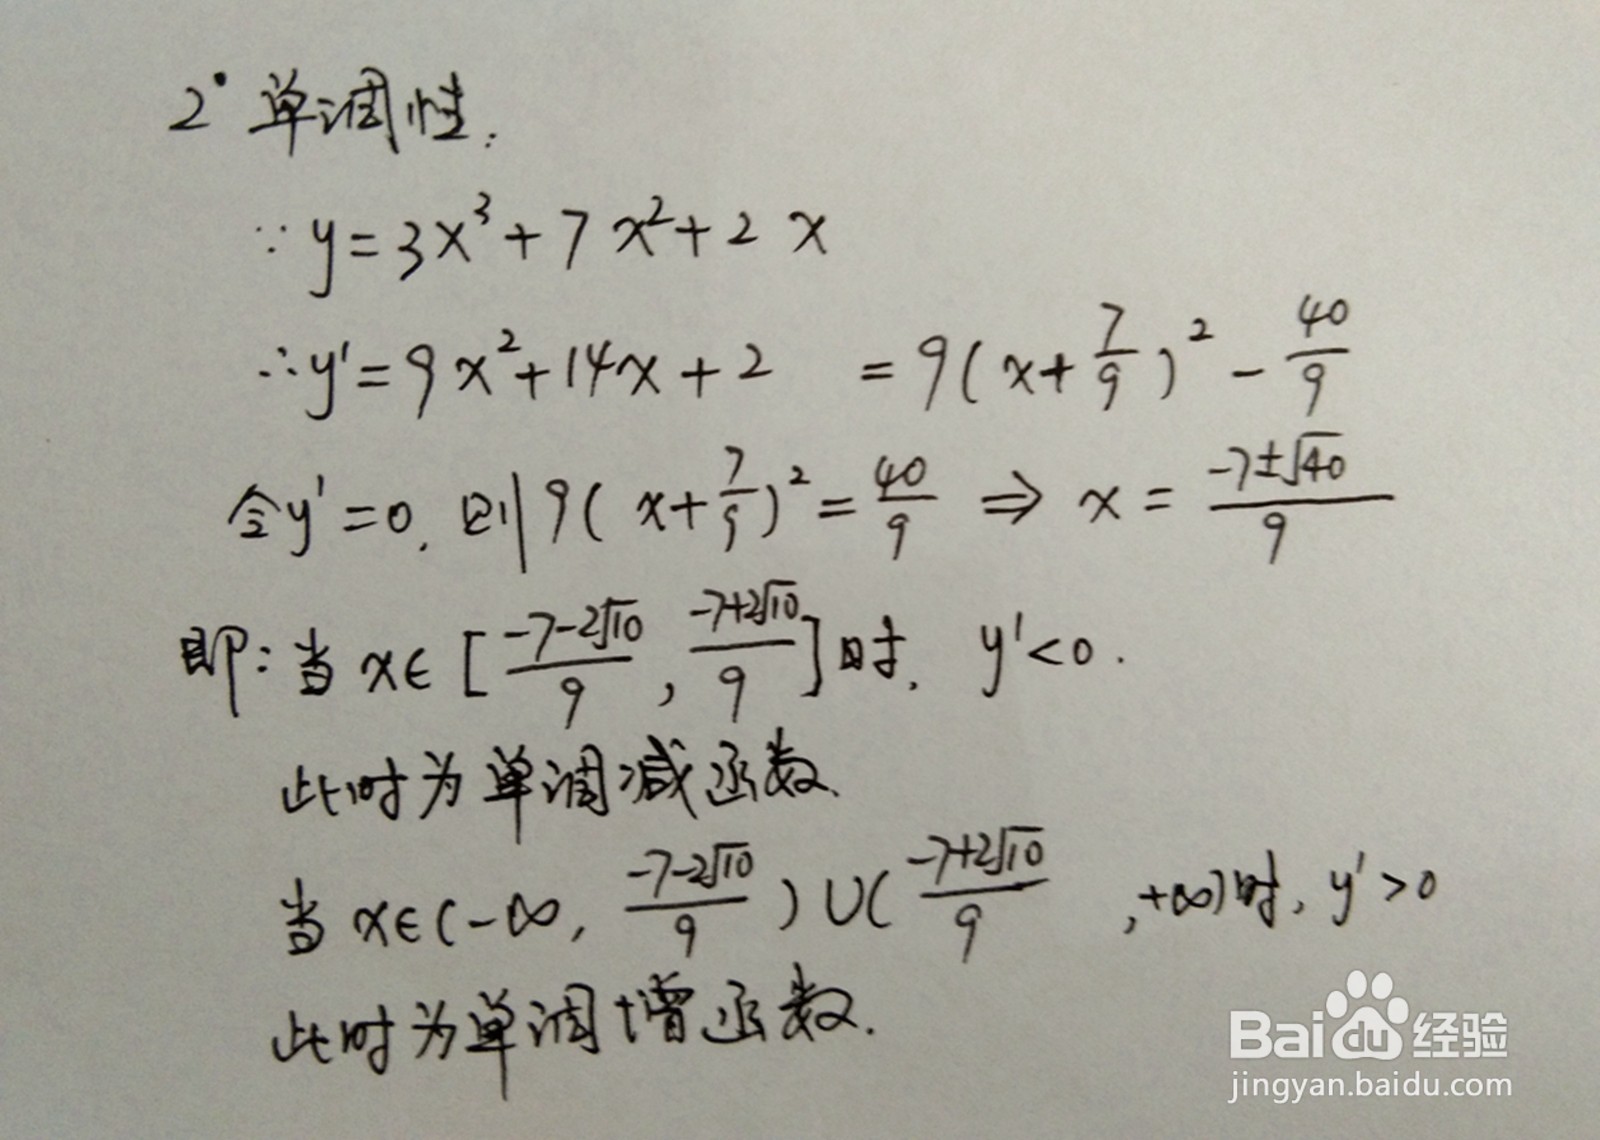 2° 单调性.
∵ y=3x³+7x²+2x
∴ y'=9x²+14x+2 =9(x+7/9)²-40/9
令y'=0, 则9(x+7/9)²=40/9 ⇒ x=(-7±√40)/9
即: 当x∈[(-7-2√10)/9, (-7+2√10)/9]时, y'<0.
此时为单调减函数.
当x∈(-∞, (-7-2√10)/9)∪((-7+2√10)/9, +∞)时, y'>0
此时为单调增函数.
Baidu经验
jingyan.baidu.com